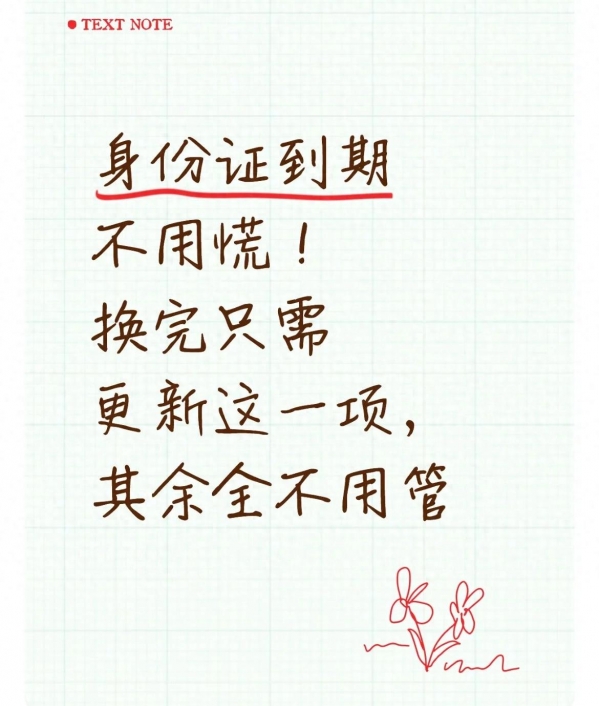 TEXT NOTE
身份证到期
不用慌！
换完只需
更新这一项，
其余全不用管